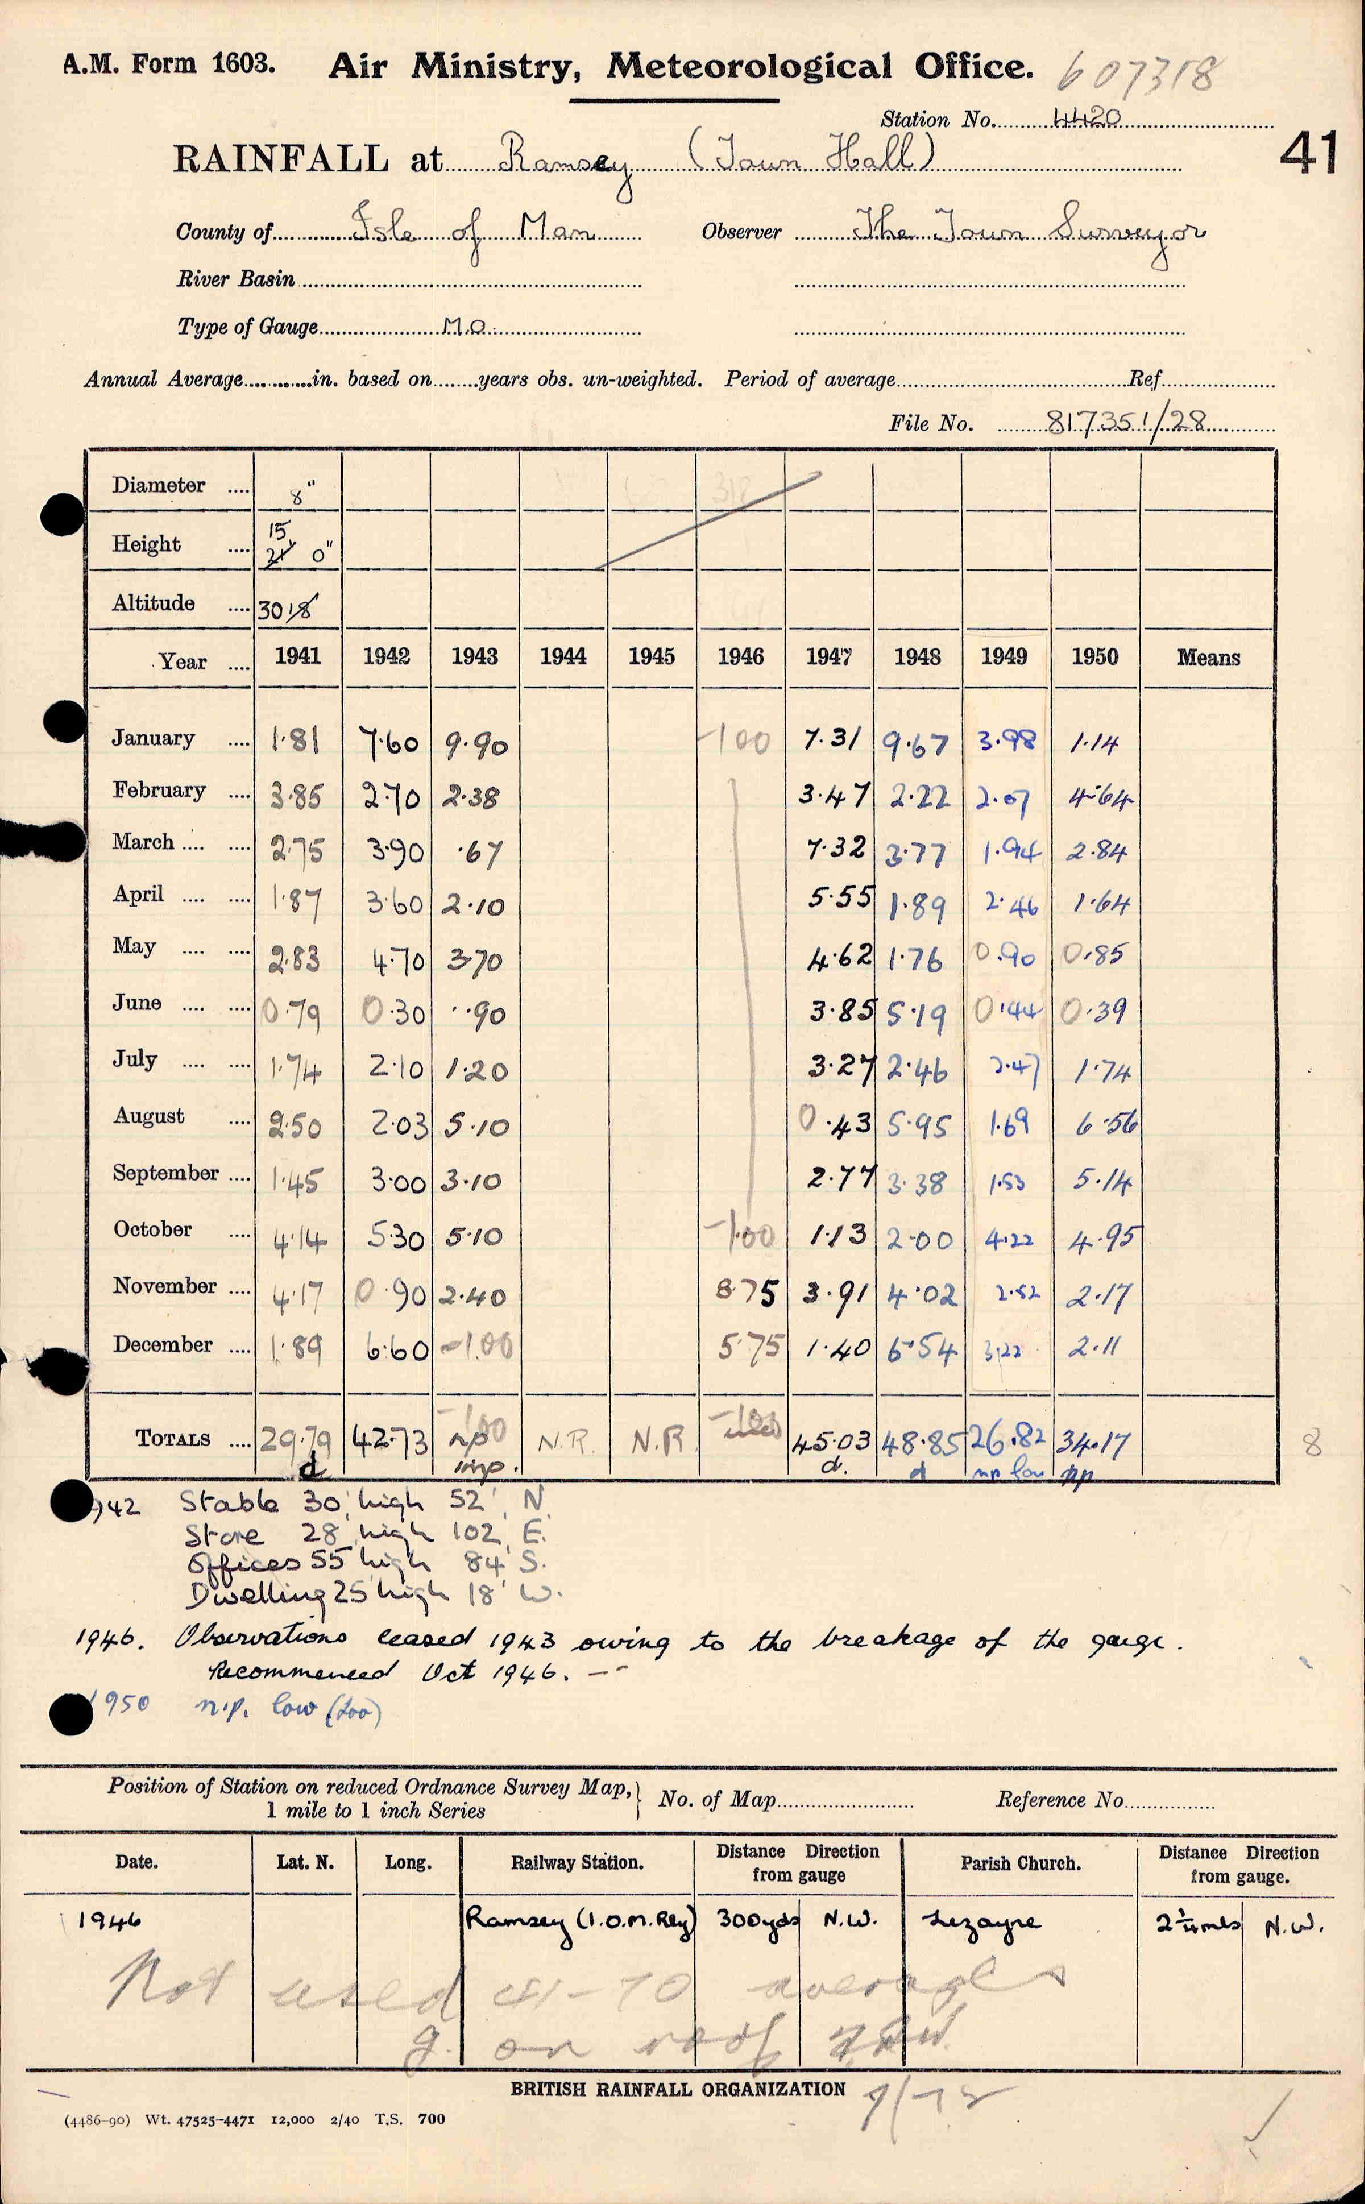 A.M. Form 1603. Air Ministry, Meteorological Office. 607318
Station No. 4420
41
RAINFALL at Ramsey (Town Hall)
County of Isle of Man Observer The Town Surveyor
River Basin
Type of Gauge M.O.
Annual Average in. based on years obs. un-weighted. Period of average Ref.
File No. 817351/28
Diameter 8"
Height 15 21' 0"
Altitude 30 18
Year 1941 1942 1943 1944 1945 1946 1947 1948 1949 1950 Means
January 1.81 7.60 9.90 -100 7.31 9.67 3.98 1.14
February 3.85 2.70 2.38 3.47 2.22 2.07 4.64
March 2.75 3.90 .67 7.32 3.77 1.94 2.84
April 1.87 3.60 2.10 5.55 1.89 2.46 1.64
May 2.83 4.70 3.70 4.62 1.76 0.90 0.85
June 0.79 0.30 .90 3.85 5.19 0.44 0.39
July 1.74 2.10 1.20 3.27 2.46 2.47 1.74
August 2.50 2.03 5.10 0.43 5.95 1.69 6.56
September 1.45 3.00 3.10 2.77 3.38 1.53 5.14
October 4.14 5.30 5.10 -1.00 1.13 2.00 4.22 4.95
November 4.17 0.90 2.40 8.75 3.91 4.02 2.52 2.17
December 1.89 6.60 -1.00 5.75 1.40 6.54 3.22 2.11
TOTALS 29.79 42.73 -100 N.R. N.R. -100 45.03 48.85 26.82 34.17 8
d np imp. d. d np low np
1942 Stable 30' high 52' N.
Store 28' high 102' E.
Offices 55' high 84' S.
Dwelling 25' high 18' W.
1946. Observations ceased 1943 owing to the breakage of the gauge.
Recommenced Oct 1946. --
1950 n.p. low (too)
Position of Station on reduced Ordnance Survey Map, 1 mile to 1 inch Series } No. of Map Reference No
Date. Lat. N. Long. Railway Station. Distance Direction from gauge Parish Church. Distance Direction from gauge.
1946 Ramsey (I.O.M. Rly) 300yds N.W. Lezayre 2¼mls N.W.
Not used 41-70 averages
g. on roof
BRITISH RAINFALL ORGANIZATION
(4486-90) Wt. 47525-4471 12,000 2/40 T.S. 700